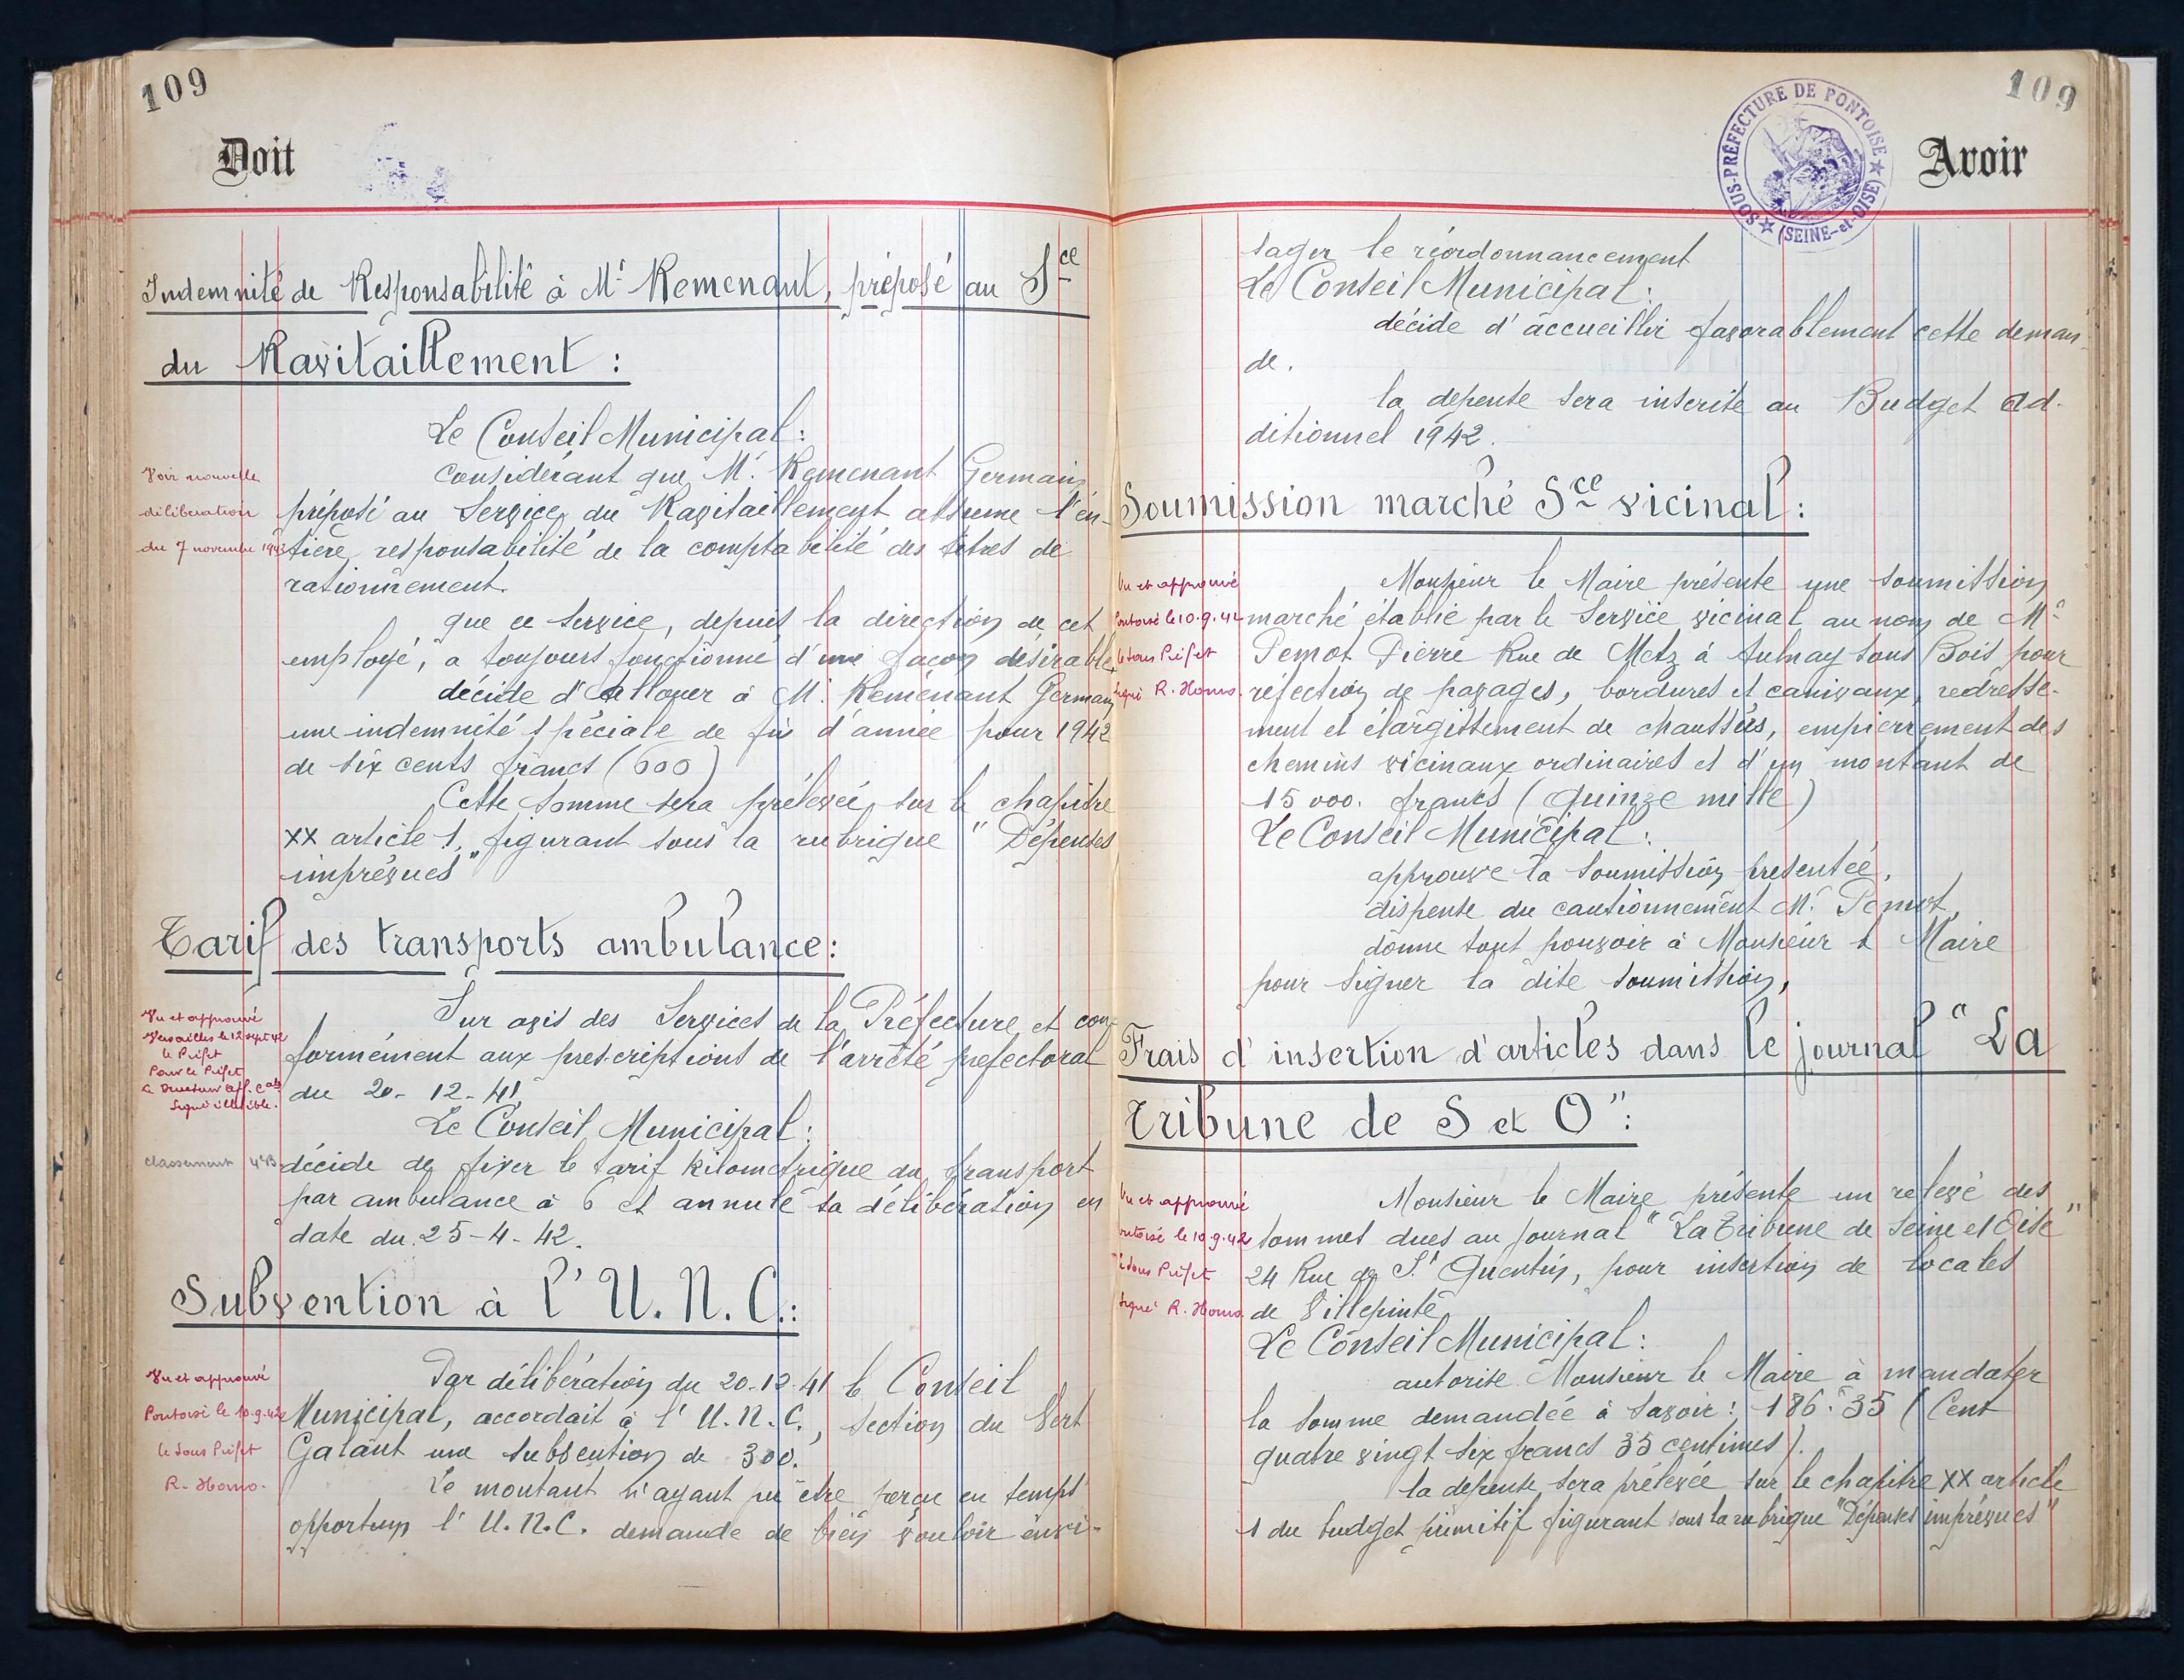 109
Doit
Indemnité de Responsabilité à Mr Remenant, préposé au Sce
du Ravitaillement :
Le Conseil Municipal :
considérant que Mr. Remenant Germain
Voir nouvelle
délibération
du 7 novembre 1943
préposé au Service du Ravitaillement assume l'en-
tière responsabilité de la comptabilité des titres de
rationnement.
que ce service, depuis la direction de cet
employé, a toujours fonctionné d'une façon désirable,
décide d'allouer à Mr. Remenant Germain
une indemnité spéciale de fin d'année pour 1942
de six cents francs (600)
Cette somme sera prélevée sur le chapitre
XX article 1, figurant sous la rubrique " Dépenses
imprévues"
Tarif des transports ambulance :
Vu et approuvé
Versailles le 12 sept 42
le Préfet
Pour le Préfet
Le Directeur
Signé illisible.
Sur avis des Services de la Préfecture et con-
formément aux prescriptions de l'arrêté prefectoral
du 20-12-41,
Le Conseil Municipal :
classement
décide de fixer le tarif kilométrique du transport
par ambulance à 6 et annule sa délibération en
date du 25-4-42.
Subvention à l'U.N.C. :
Vu et approuvé
Pontoise le 10.9.42
le Sous Préfet
R. Homo.
Par délibération du 20-12-41 le Conseil
Municipal, accordait à l'U.N.C., section du Vert
Galant une subvention de 300.
Le montant n'ayant pu être perçu en temps
opportun l'U.N.C. demande de bien vouloir envi-
109
SOUS-PRÉFECTURE DE PONTOISE
(SEINE-et-OISE)
Avoir
sager le réordonnancement
Le Conseil Municipal :
décide d'accueillir favorablement cette deman-
de.
la dépense sera inscrite au Budget ad-
ditionnel 1942.
Soumission marché Sce vicinal :
Vu et approuvé
Pontoise le 10.9.42
le Sous Préfet
signé R. Homo.
Monsieur le Maire présente une soumission
marché établie par le Service vicinal au nom de Mr
Pemot Pierre Rue de Metz à Aulnay sous Bois pour
réfection de pavages, bordures et caniveaux, redresse-
ment et élargissement de chaussées, empierrement des
chemins vicinaux ordinaires et d'un montant de
15 000. francs (quinze mille)
Le Conseil Municipal :
approuve la soumission présentée,
dispense du cautionnement Mr. Pemot,
donne tout pouvoir à Monsieur le Maire
pour signer la dite soumission,
Frais d'insertion d'articles dans le journal "La
Tribune de S et O" :
Vu et approuvé
Pontoise le 10.9.42
le Sous Préfet
signé R. Homo.
Monsieur le Maire présente un relevé des
sommes dues au journal "La Tribune de Seine et Oise"
24 Rue de St Quentin, pour insertion de locales
de Villepinte
Le Conseil Municipal :
autorise Monsieur le Maire à mandater
la somme demandée à savoir : 186f35 (Cent
quatre vingt six francs 35 centimes).
la dépense sera prélevée sur le chapitre XX article
1 du budget primitif figurant sous la rubrique "Dépenses imprévues"